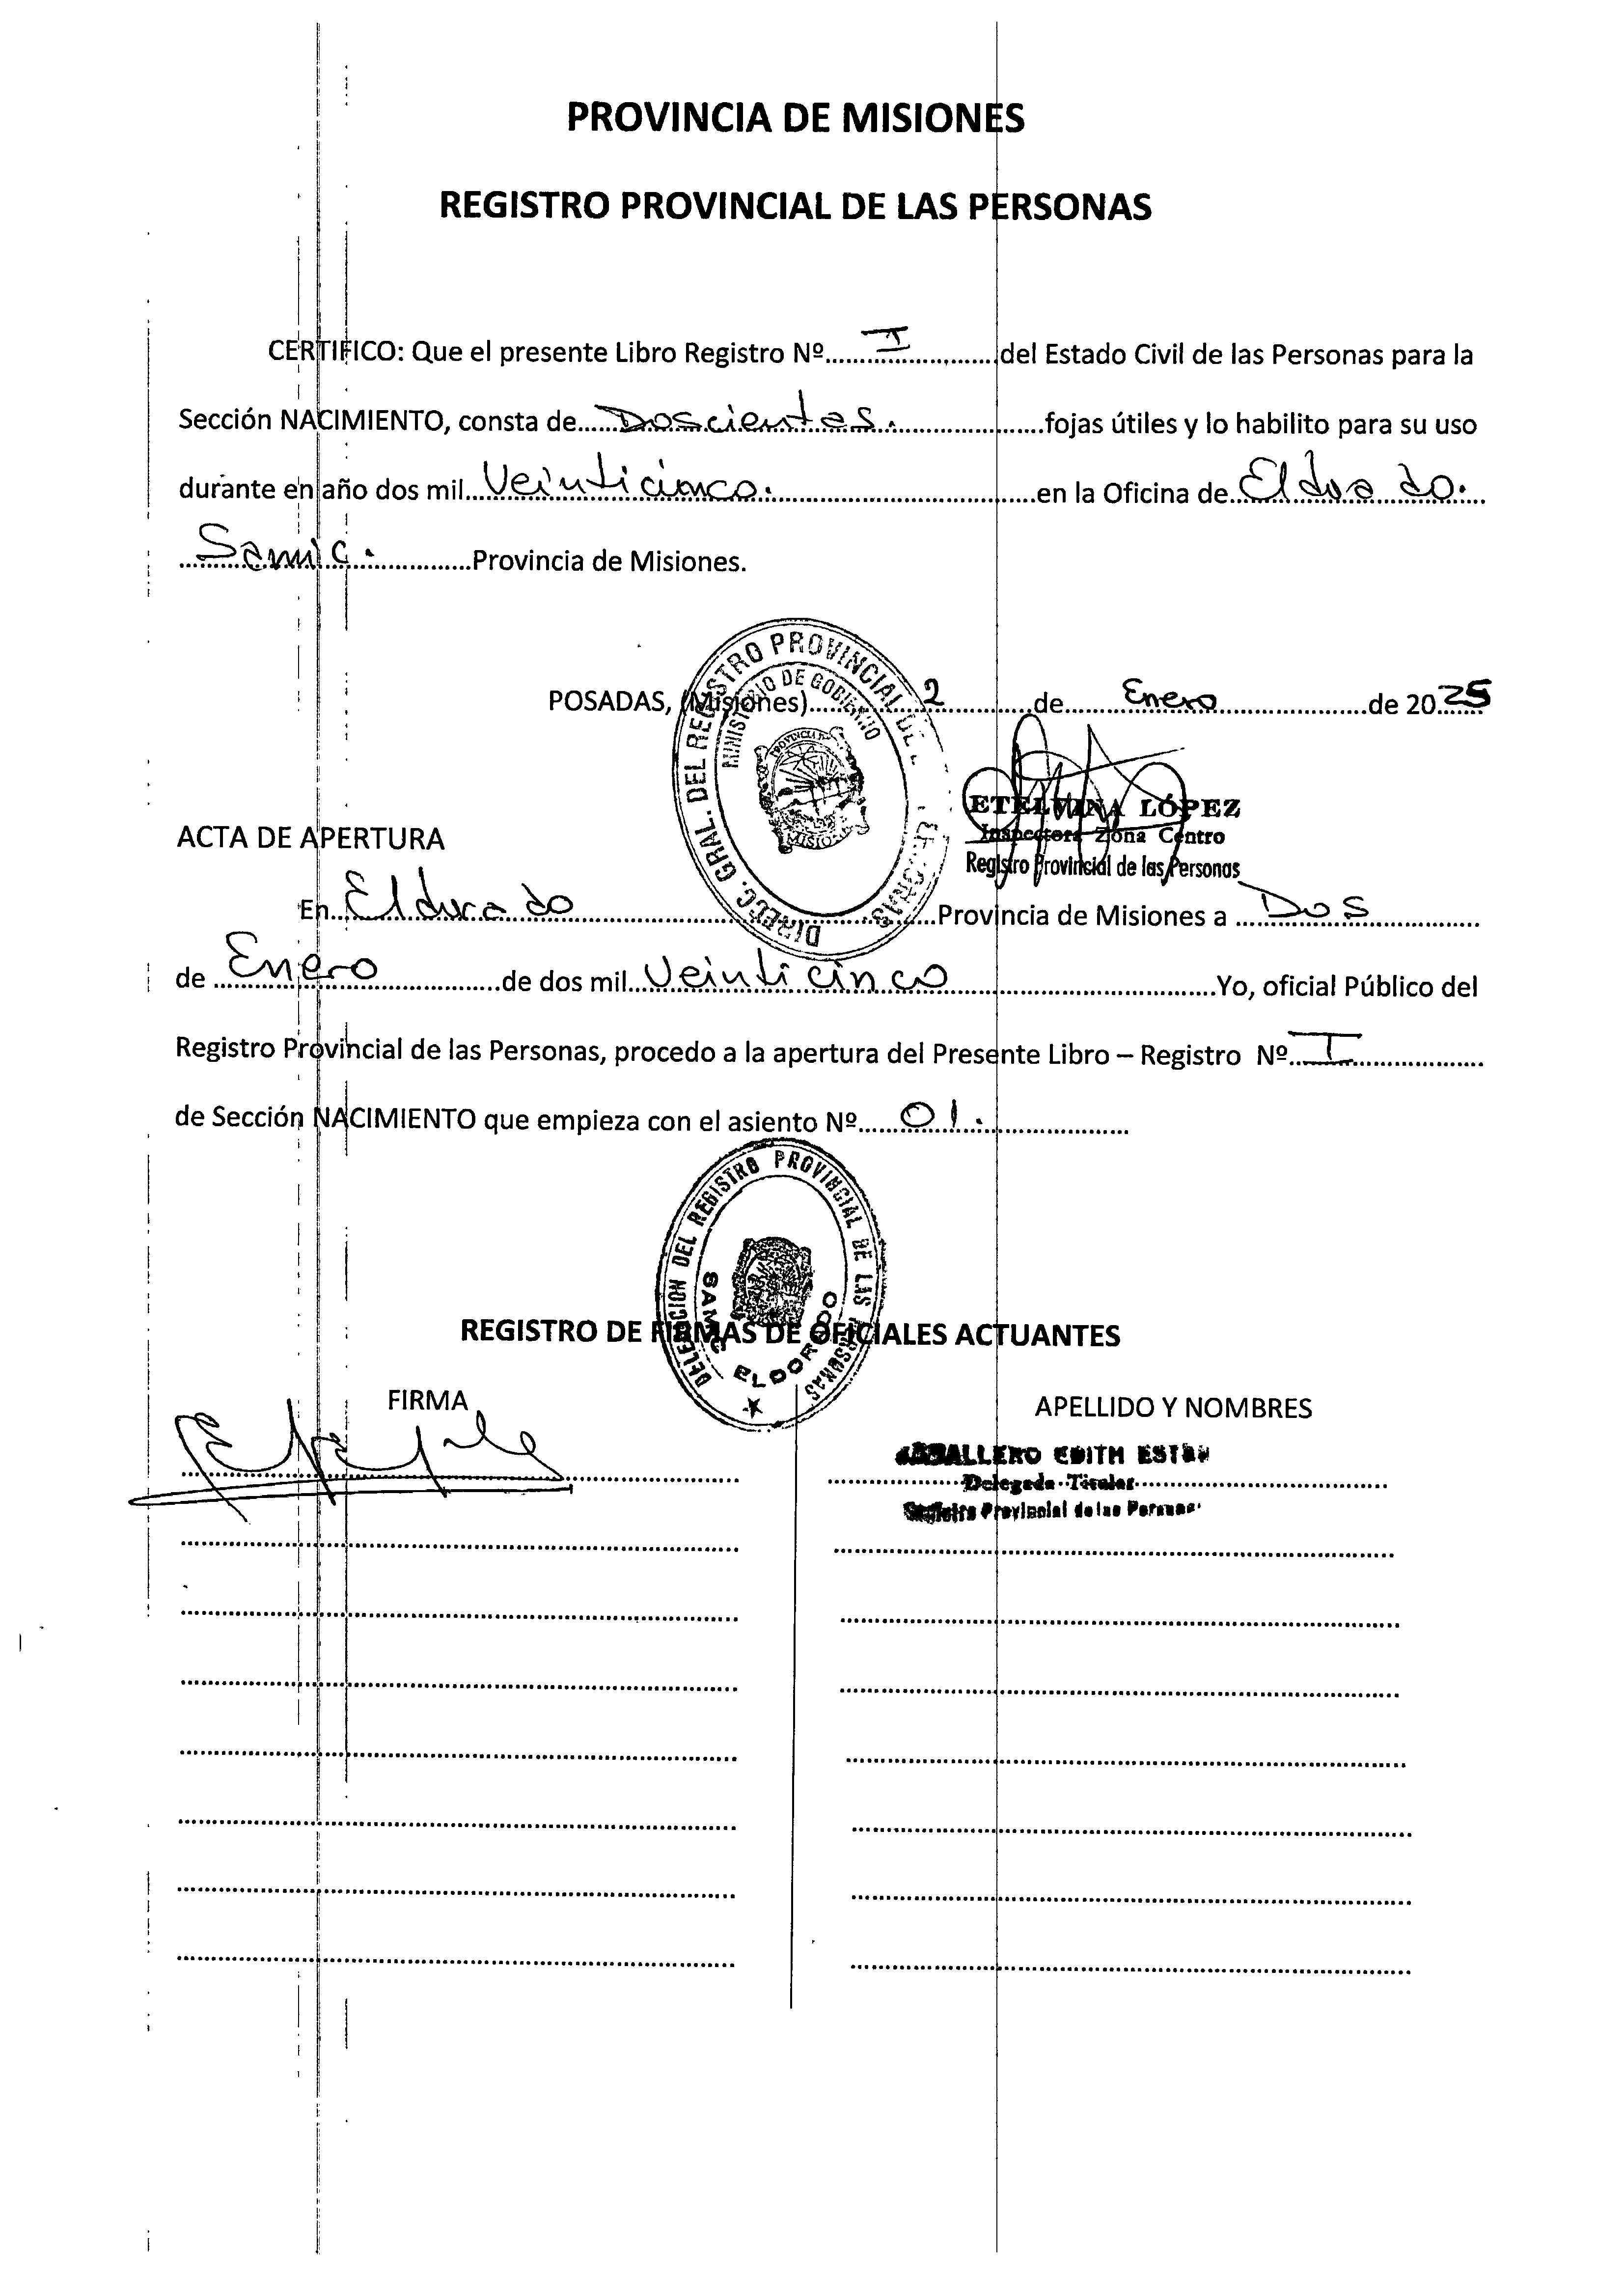 PROVINCIA DE MISIONES
REGISTRO PROVINCIAL DE LAS PERSONAS
CERTIFICO: Que el presente Libro Registro Nº I del Estado Civil de las Personas para la
Sección NACIMIENTO, consta de Doscientas. fojas útiles y lo habilito para su uso
durante en año dos mil Veinticinco. en la Oficina de Eldorado.
Samic. Provincia de Misiones.
POSADAS, (Misiones) 2 de Enero de 2025
DIRECC. GRAL. DEL REGISTRO PROVINCIAL DE
MINISTERIO DE GOBIERNO
PROVINCIA
MISIO
ETELVINA LÓPEZ
Inspectora Zona Centro
Registro Provincial de las Personas
ACTA DE APERTURA
En Eldorado Provincia de Misiones a Dos
de Enero de dos mil Veinticinco Yo, oficial Público del
Registro Provincial de las Personas, procedo a la apertura del Presente Libro – Registro Nº I
de Sección NACIMIENTO que empieza con el asiento Nº 01.
DELEGACION DEL REGISTRO PROVINCIAL DE LAS PERSONAS
SAMIC ELDORADO
REGISTRO DE FIRMAS DE OFICIALES ACTUANTES
FIRMA
APELLIDO Y NOMBRES
CABALLERO EDITH
Delegada Titular
Registro Provincial de las Personas